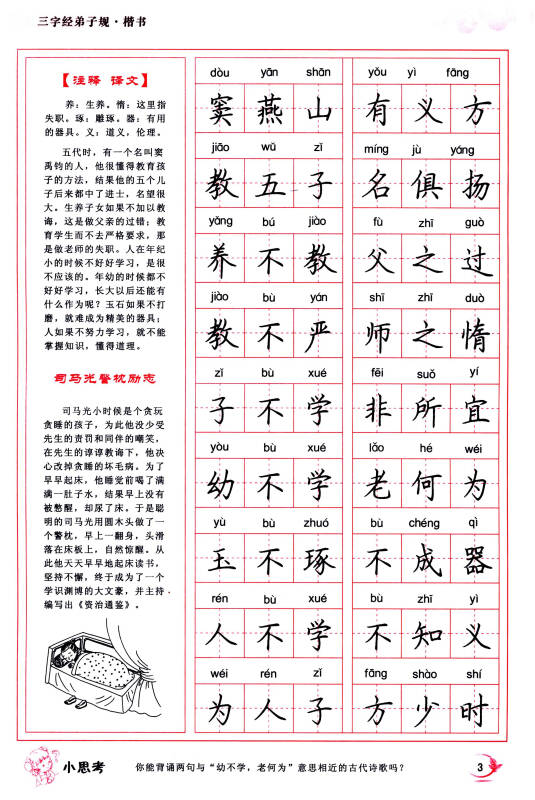 三字经弟子规·楷书
【注释 译文】
养：生养。惰：这里指
失职。琢：雕琢。器：有用
的器具。义：道义，伦理。
五代时，有一个名叫窦
禹钧的人，他很懂得教育孩
子的方法，结果他的五个儿
子后来都中了进士，名望很
大。生养子女如果不加以教
诲，这是做父亲的过错；教
育学生而不去严格要求，那
是做老师的失职。人在年纪
小的时候不好好学习，是很
不应该的。年幼的时候都不
好好学习，长大以后还能有
什么作为呢？玉石如果不打
磨，就难成为精美的器具；
人如果不努力学习，就不能
掌握知识，懂得道理。
司马光警枕励志
司马光小时候是个贪玩
贪睡的孩子，为此他没少受
先生的责罚和同伴的嘲笑，
在先生的谆谆教诲下，他决
心改掉贪睡的坏毛病。为了
早早起床，他睡觉前喝了满
满一肚子水，结果早上没有
被憋醒，却尿了床。于是聪
明的司马光用圆木头做了一
个警枕，早上一翻身，头滑
落在床板上，自然惊醒。从
此他天天早早地起床读书，
坚持不懈，终于成为了一个
学识渊博的大文豪，并主持
编写出《资治通鉴》。
dòu yān shān yǒu yì fāng
窦燕山 有义方
jiāo wǔ zǐ míng jù yáng
教五子 名俱扬
yǎng bú jiào fù zhī guò
养不教 父之过
jiào bù yán shī zhī duò
教不严 师之惰
zǐ bù xué fēi suǒ yí
子不学 非所宜
yòu bù xué lǎo hé wéi
幼不学 老何为
yù bù zhuó bù chéng qì
玉不琢 不成器
rén bù xué bù zhī yì
人不学 不知义
wéi rén zǐ fāng shào shí
为人子 方少时
小思考 你能背诵两句与“幼不学，老何为”意思相近的古代诗歌吗？ 3